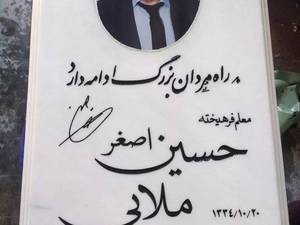 راه مردان بزرگ ادامه دارد
معلم فرهیخته
حسین اصغر
ملایی
۱۳۳۴/۱۰/۲۰